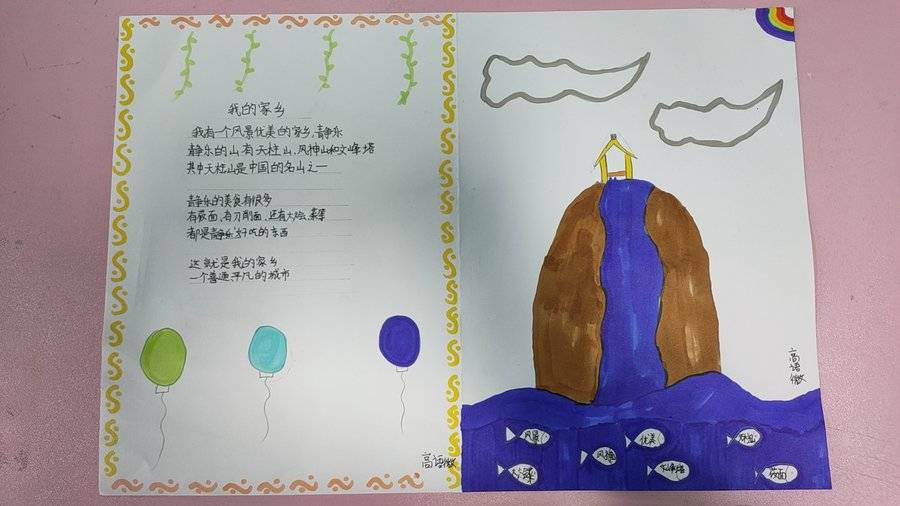 我的家乡
我有一个风景优美的家乡,静乐
静乐的山有天柱山,风神山和文峰塔
其中天柱山是中国的名山之一
静乐的美食有很多
有莜面,有刀削面,还有大烩菜
都是静乐好吃的东西
这就是我的家乡
一个普通,平凡的城市
高语微
高语微
风景
优美
风神
文峰塔
莜面